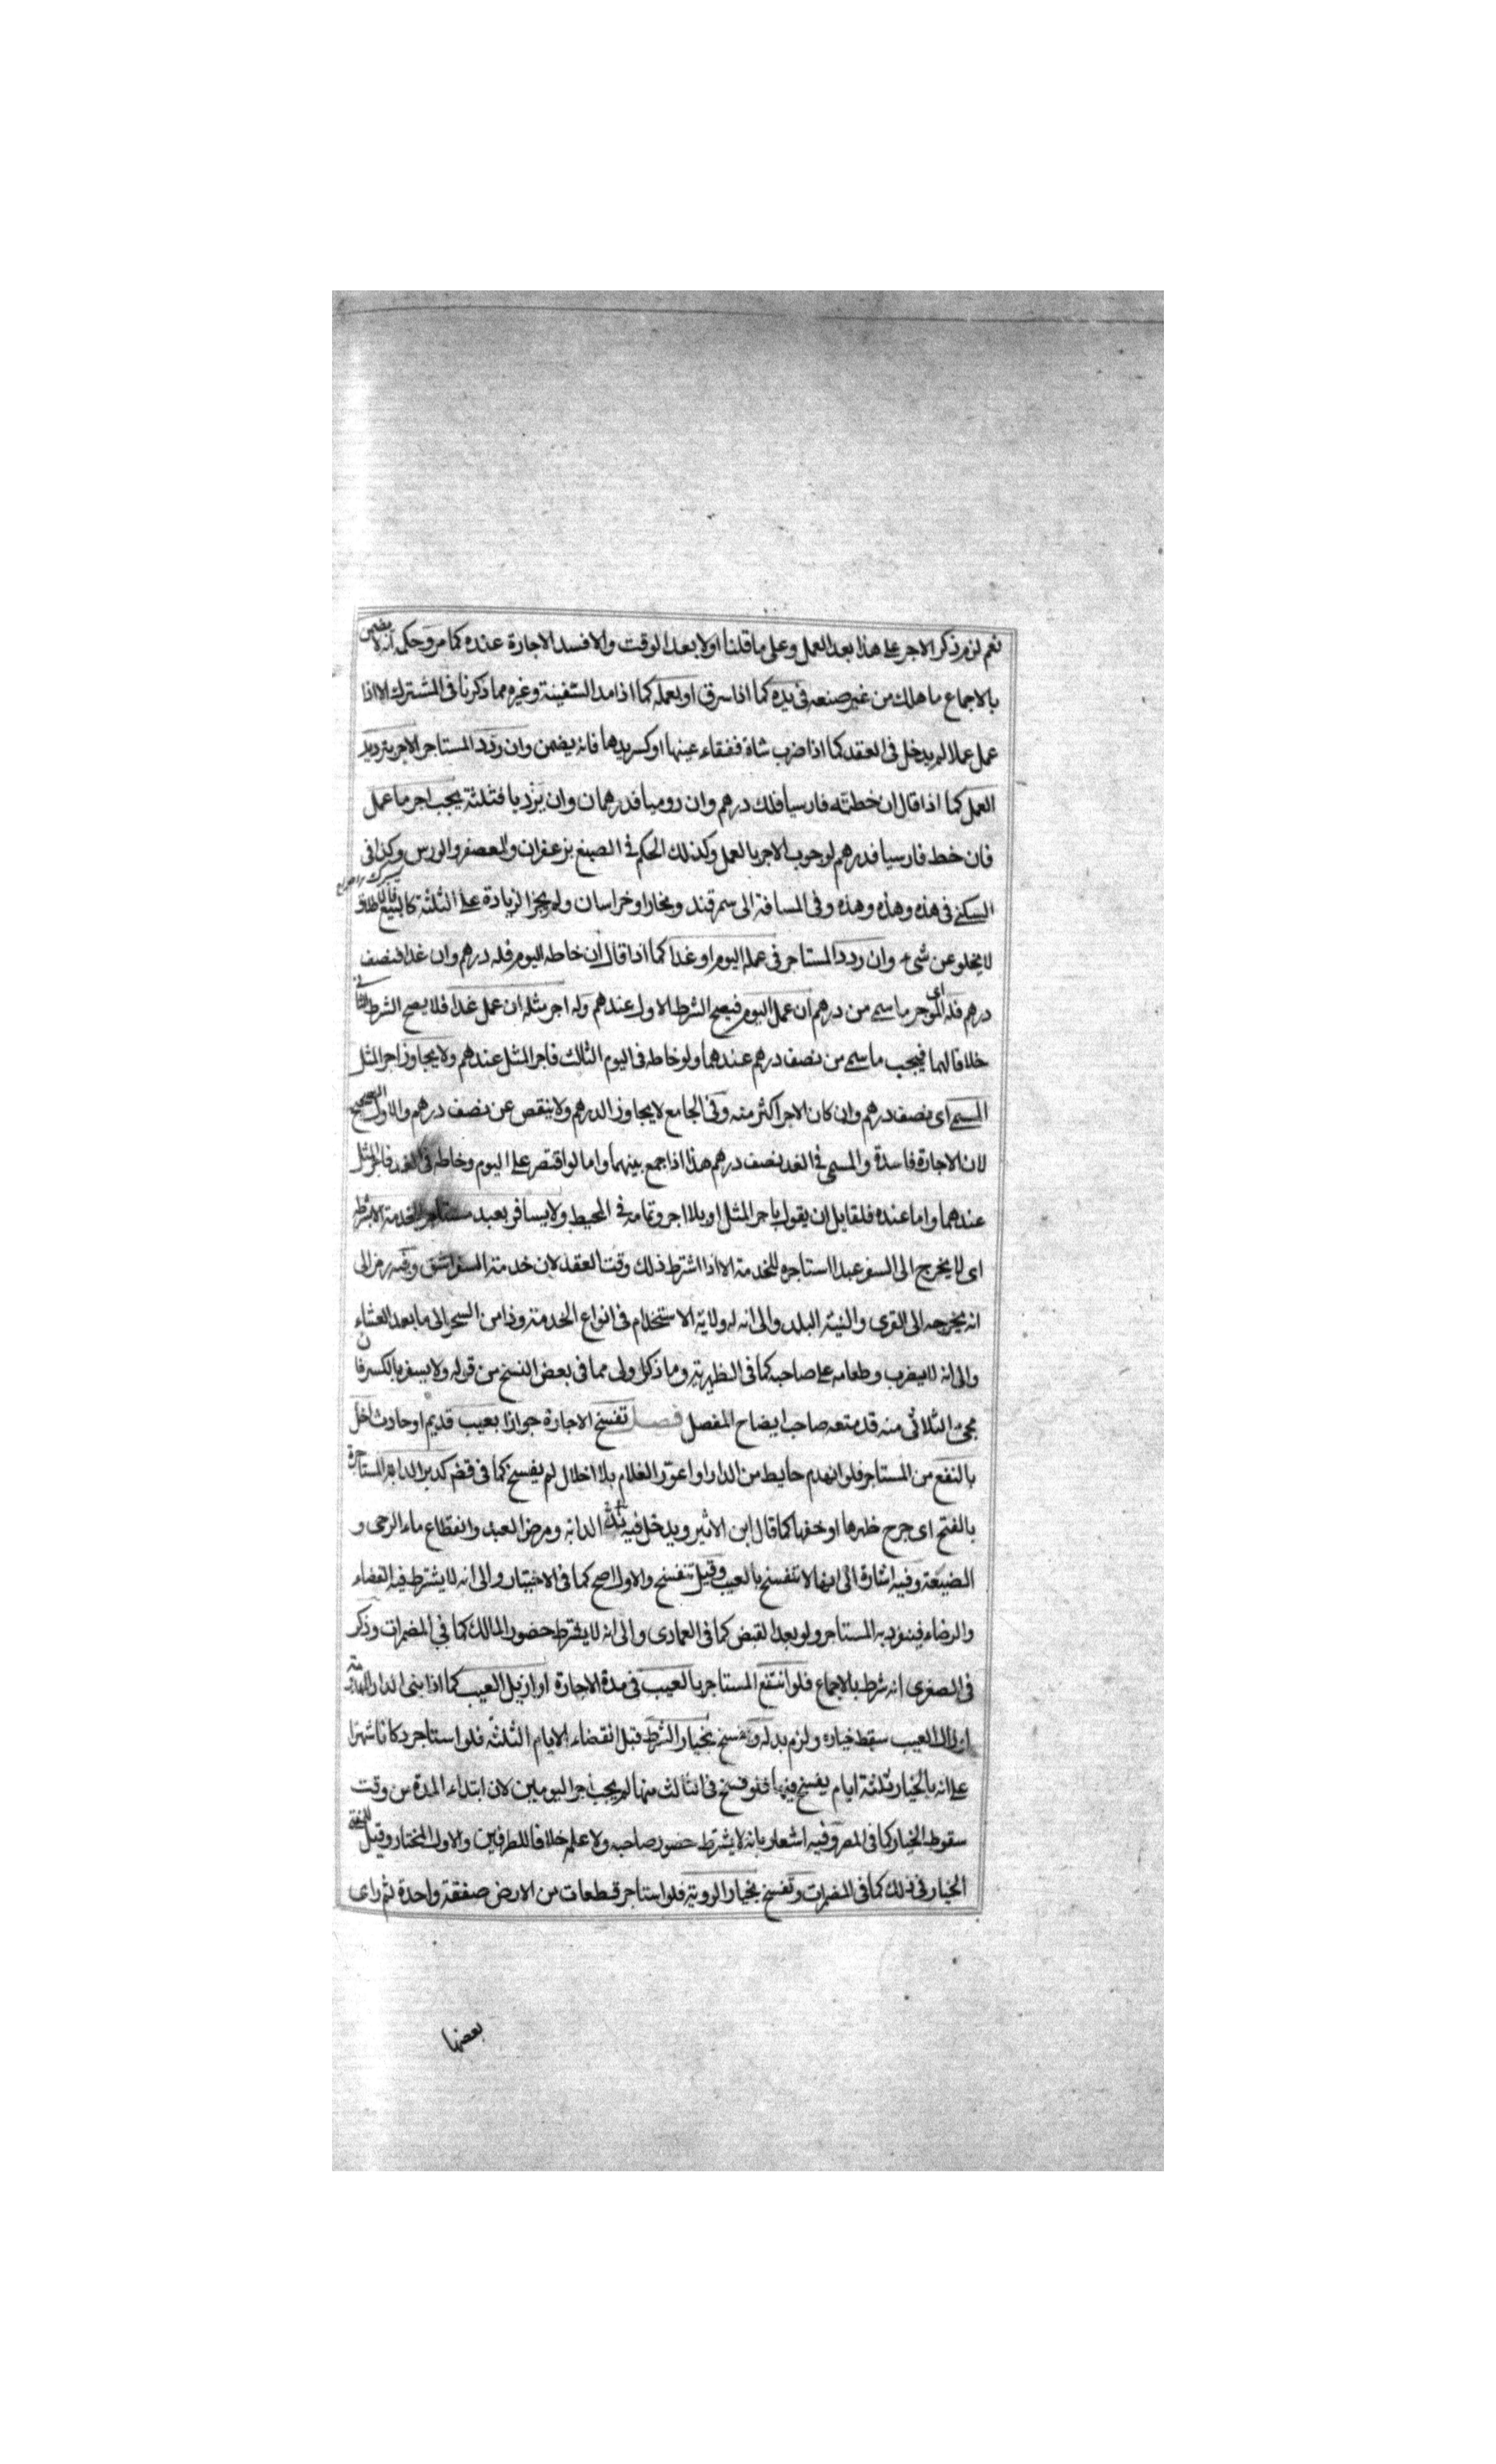 نعم لزم ذكر الاجر على هذا بعد العمل وعلى ما قلنا اولا بعد الوقت والا فسد الاجارة عنده كما مر وحكمه انه لا يضمن
بالاجماع ما هلك من غير صنعه فى يده كما اذا سرق او بعمله كما اذا مد السفينة وغيره مما ذكرنا فى المشترك الا اذا
عمل عملا لم يدخل فى العقد كما اذا ضرب شاة ففقاء عينها او كسر يدها فانه يضمن وان ردّد المستاجر الاجر بترديد
العمل كما اذا قال ان خطته فارسيا فلك درهم وان روميا فدرهمان وان يزديا فثلثة يجب اجر ما عمل
فان خط فارسيا فدرهم لوجوب الاجر بالعمل وكذلك الحكم فى الصبغ بزعفران والعصفر والورس وكذا فى
السكنى فى هذه وهذه وهذه وفى المسافة الى سمرقند وبخارا وخراسان ولم يجز الزيادة على الثلثة كالبيع
لا يخلو عن شىء وان ردد المستاجر فى عمله اليوم او غدا كما اذا قال ان خاطه اليوم فله درهم وان غدا فنصف
درهم فله اى الموجر ما سمى من درهم ان عمل اليوم فيصح الشرط الاول عندهم وله اجر مثله ان عمل غدا فلا يصح الشرط الثانى
خلافا لهما فيجب ما سمى من نصف درهم عندهما ولو خاطه فى اليوم الثالث فاجر المثل عندهم ولا يجاوز اجر المثل
المسمى اى نصف درهم وان كان الاجر اكثر منه وفى الجامع لا يجاوز الدرهم ولا ينقص عن نصف درهم والاول الصحيح
لان الاجارة فاسدة والمسمى فى الغد نصف درهم هذا اذا جمع بينهما واما لو اقتصر على اليوم وخاطه فى الغد فاجر المثل
عندهما واما عنده فلقايل ان يقول باجر المثل او بلا اجر وتمامه فى المحيط ولا يسافر بعبد مستاجر للخدمة الا بشرطه
اى لا يخرج الى السفر عبدا استاجره للخدمة الا اذا اشترط ذلك وقت العقد لان خدمة السفر اشق وفيه رمز الى
انه يخرجه الى القرى والنية البلد والى انه له ولاية الاستخدام فى انواع الخدمة وذا من السحر الى ما بعد العشاء
والى انه لا يضرب وطعامه على صاحبه كما فى الظهيرية وما ذكر اولى مما فى بعض النسخ من قوله ولا يسفر بالكسر فان
مجئ الثلاثى منه قد منعه صاحب ايضاح المفصل فصل تفسخ الاجارة جوازا بعيب قديم او حادث اخل
بالنفع من المستاجر فلو انهدم حايط من الدار او اعور الغلام بلا اخلال لم يفسخ كما فى قضم كدبر الدابة المستاجرة
بالفتح اى جرح ظهرها او خفها كما قال ابن الاثير ويدخل فيه الدابة ومرض العبد وانقطاع ماء الرحى و
الضيعة وفيه اشارة الى انها لا تنفسخ بالعيب وقيل تنفسخ والاول اصح كما فى الاختيار والى انه لا يشترط فيه القضاء
والرضاء فينفرد به المستاجر ولو بعد القبض كما فى العمادى والى انه لا يشترط حضور المالك كما فى المضمرات وذكر
فى الصغرى انه شرط بالاجماع فلو انتفع المستاجر بالعيب فى مدة الاجارة او ازيل العيب كما اذا بنى الدار
ازال العيب سقط خياره ولزم بدله وتفسخ بخيار الشرط قبل انقضاء الايام الثلثة فلو استاجر دكانا شهرا
على انه بالخيار ثلثة ايام يفسخ فيها فلو فسخ فى الثالث منها لم يجب اجر اليومين لان ابتداء المدة من وقت
سقوط الخيار كما فى المر وفيه اشعار بانه لا يشترط حضور صاحبه ولا علمه خلافا للطرفين والاول المختار وقيل
الخيار فى ذلك كما فى المضمرات وتفسخ بخيار الروية فلو استاجر قطعات من الارض صفقة واحدة ثم راى
بعضها